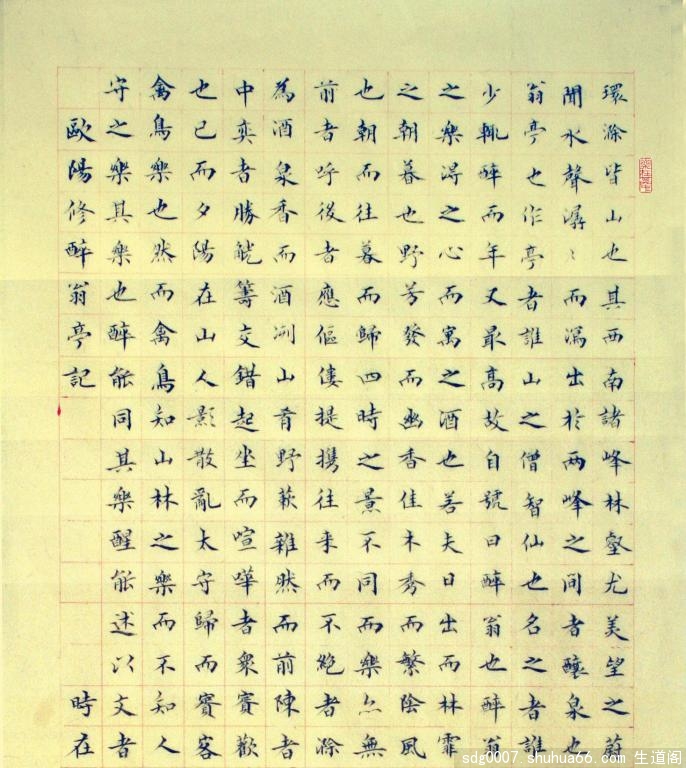 環滁皆山也其西南諸峰林壑尤美望之蔚
聞水聲潺〻而瀉出於兩峰之間者釀泉也
翁亭也作亭者誰山之僧智仙也名之者誰
少輒醉而年又最高故自號曰醉翁也醉翁
之樂得之心而寓之酒也若夫日出而林霏
之朝暮也野芳發而幽香佳木秀而繁陰風
也朝而往暮而歸四時之景不同而樂亦無
前者呼後者應傴僂提携往来而不絶者滁
為酒泉香而酒冽山肴野蔌雜然而前陳者
中奕者勝觥籌交錯起坐而喧嘩者衆賓歡
也已而夕陽在山人影散亂太守歸而賓客
禽鳥樂也然而禽鳥知山林之樂而不知人
守之樂其樂也醉能同其樂醒能述以文者
歐陽修醉翁亭記 時在
sdg0007 . shuhua66.com 生道阁